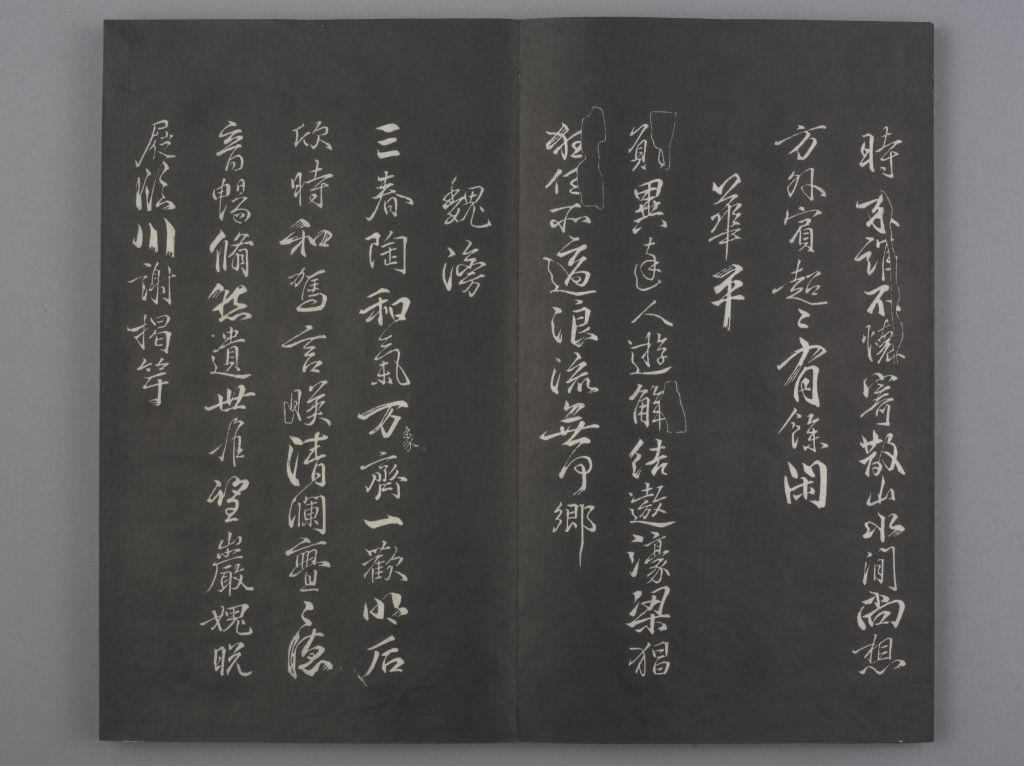 時来誰不懷寄散山水間尚想
方外賓超〻有餘閑
華平
異達人遊解結遨濠梁猖
狂任所適浪流無何鄉
魏滂
三春陶和氣万象齊一歡明后
欣時和駕言暎清瀾亹〻德
音暢脩然遺世望巖愧脫
屣臨川謝揭竿